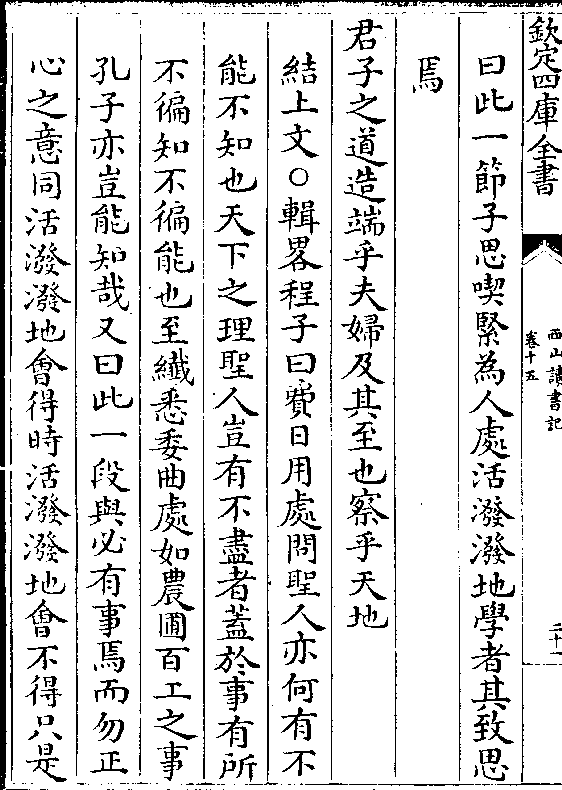 欽定四庫全書
西山讀書記
卷十五
二十一
曰此一節子思喫緊為人處活潑潑地學者其致思
焉
君子之道造端乎夫婦及其至也察乎天地
結上文○輯畧程子曰費日用處問聖人亦何有不
能不知也天下之理聖人豈有不盡者蓋於事有所
不徧知不徧能也至纖悉委曲處如農圃百工之事
孔子亦豈能知哉又曰此一段與必有事焉而勿正
心之意同活潑潑地會得時活潑潑地會不得只是